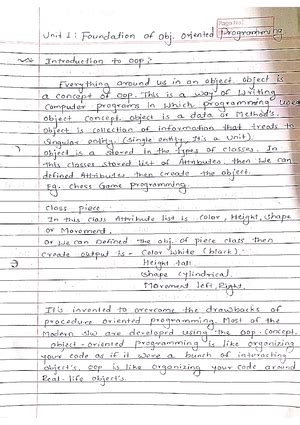 Page No.
Unit 1: Foundation of obj. oriented Programming
Introduction to oop:
Everything around us in an object object is
a concept of oop. This is a way of writing
Computer programs in which programming uses
object concept. object is a data or Methods.
object is collection of information that treads to
singular entity. (Single entity. It's a unit).
object is a stored in the types of classes. In
this classes stored list of Attributes. then we can
defined Attributes then create the object.
Eg. Chess Game programming.
class piece.
In this class Attribute list is color, Height, shape
or Movement.
or we can Defined the obj. of piece class then
create output is - Color white (black).
Height tall
Shape cylindrical.
Movement left, Right.
It's invented to overcome the drawbacks of
procedure oriented programming. Most of the
Modern s/w are developed using the oop-concept.
object-oriented programming is like organizing
your code as if it were a bunch of interacting
object's. oop is like organizing your code around
Real-life object's.